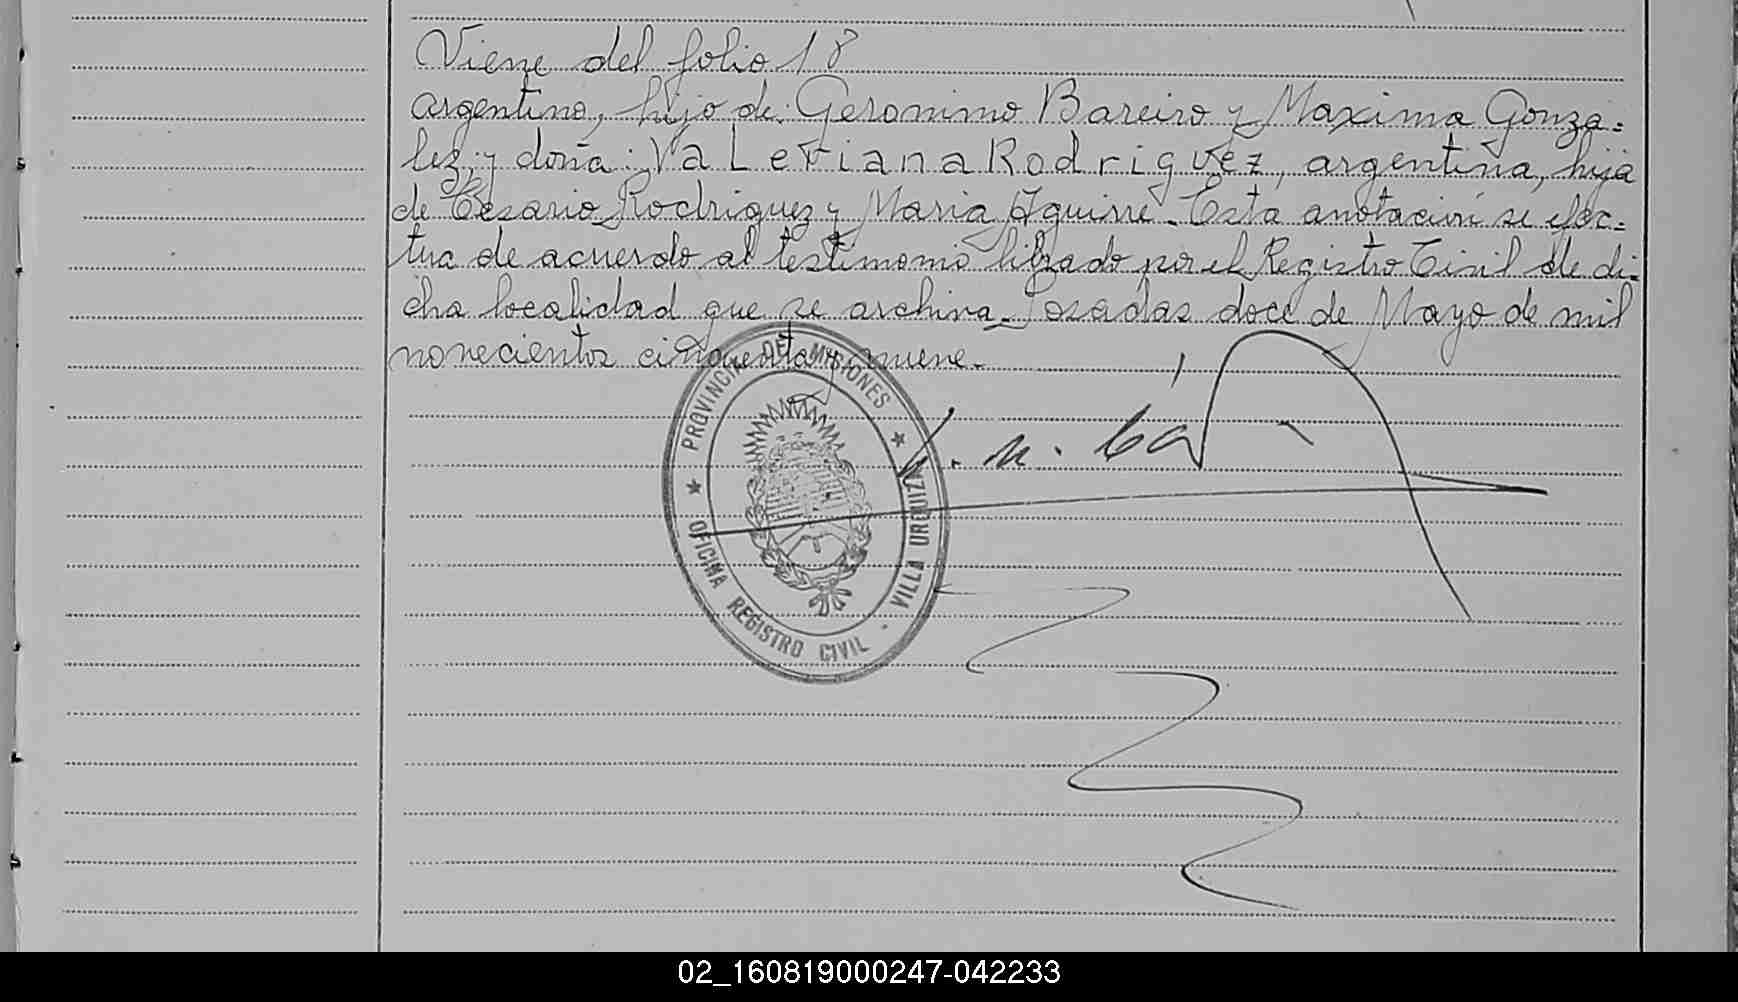 Viene del folio 18
argentino, hijo de: Geronimo Bareiro y Maxima Gonza=
lez; y doña: Valeriana Rodriguez, argentina, hija
de Cesario Rodriguez y Maria Aguirre. Esta anotación se efec=
tua de acuerdo al testimonio librado por el Registro Civil de di=
cha localidad que se archiva. Posadas doce de Mayo de mil
novecientos cincuenta y nueve.-
PROVINCIA DE MISIONES
OFICINA REGISTRO CIVIL - VILLA URQUIZA
02_160819000247-042233